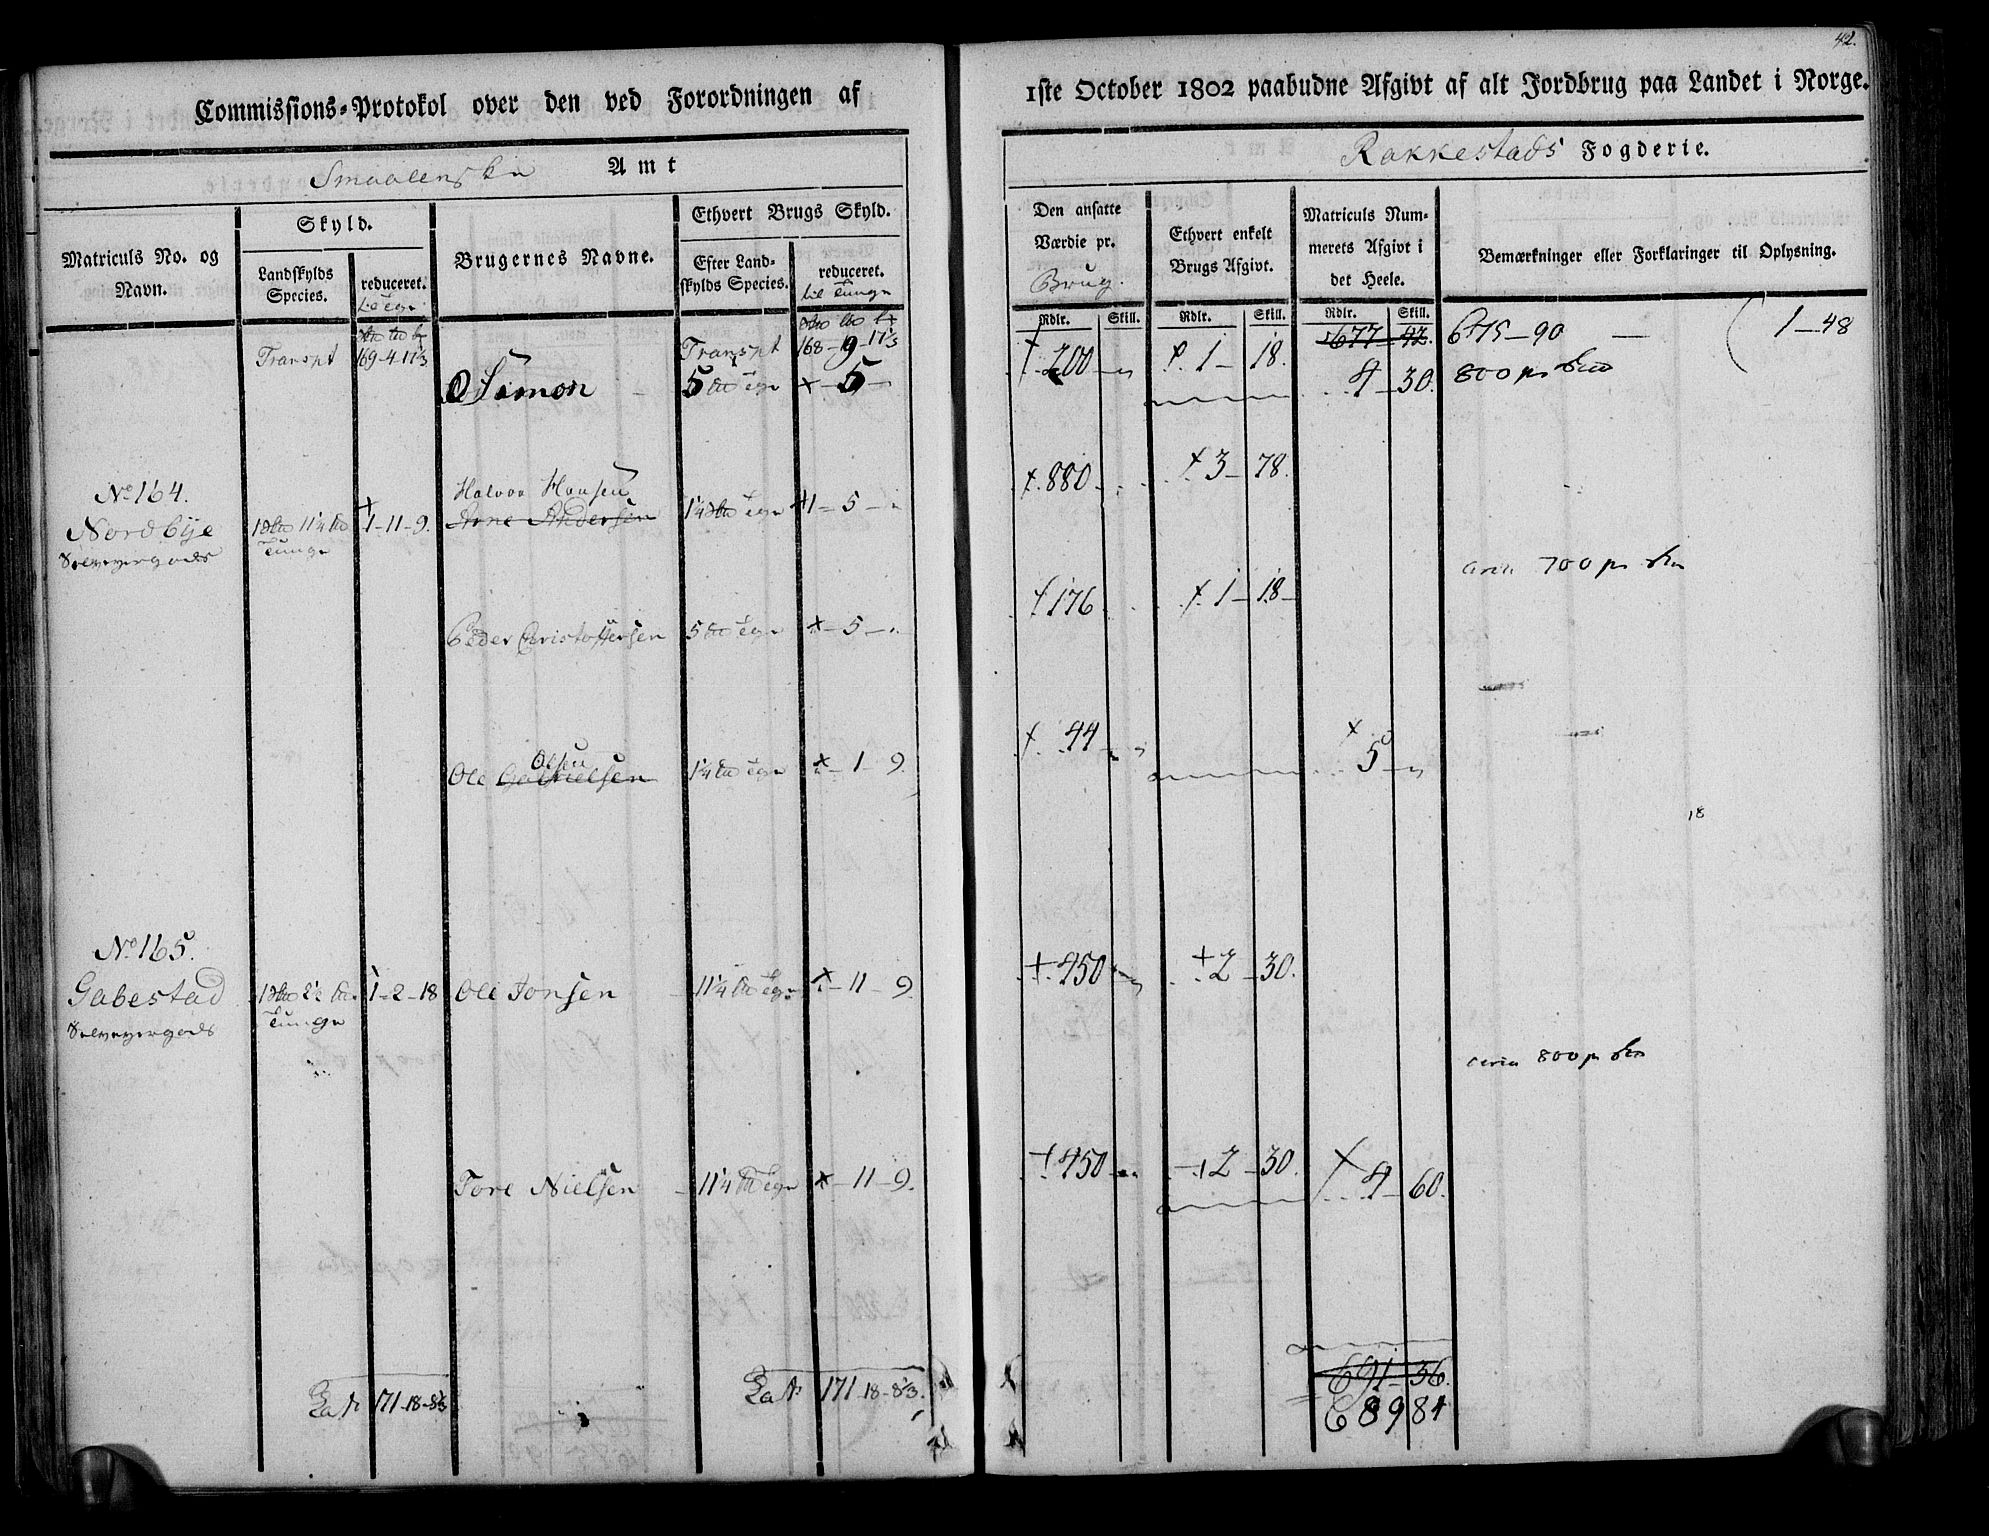 42.
Commissions-Protokol over den ved Forordningen af
1ste October 1802 paabudne Afgivt af alt Jordbrug paa Landet i Norge.
Smaalenske Amt
Rakkestads Fogderie.
Matriculs No. og Navn.
Skyld.
Landskylds Species.
reduceret.
Brugernes Navne.
Ethvert Brugs Skyld.
Efter Landskylds Species.
reduceret.
til Tunge
Den ansatte Værdie pr. Brug.
Ethvert enkelt Brugs Afgivt.
Matriculs Nummerets Afgivt i det Heele.
Bemærkninger eller Forklaringer til Oplysning.
Rdlr. Skill. Rdlr. Skill. Rdlr. Skill.
Transpt 169-4-17⅓ Transpt 168-19-17⅓ 677-42. 675-90 — 1-48
Simon 5 - 5 - 200 1-18. 4-30. 800
No 164.
Halvor Hansen 880 3-78.
Nordbye 1 11¼ 1-11-9. Arne Andersen 1¼ 1-5-
Selveyergods Tunge
700
Peder Christophersen 5 - 5 - 176 1-18-
Olsen
Ole Gabrielsen 1¼ -1-9. 44 5
18
No 165.
Gabestad 1 2½ 1-2-18 Ole Jonsen 11¼ -11-9. 450 2-30.
Selveyergods Tunge
800
Tore Nielsen 11¼ -11-9. 450 2-30. 4-60.
Lat. 171-18-8⅓ Lat. 171-18-8⅓. 691-36.
689 84